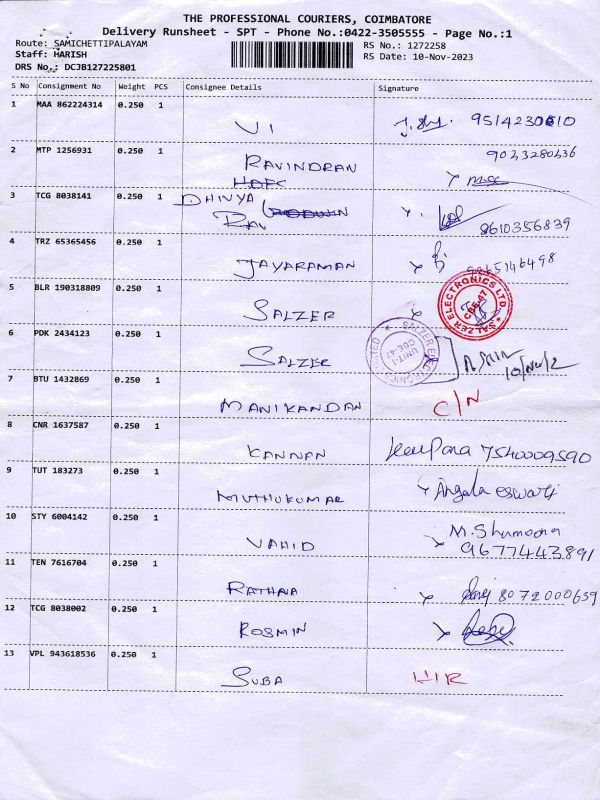 THE PROFESSIONAL COURIERS, COIMBATORE
Delivery Runsheet - SPT - Phone No.:0422-3505555 - Page No.:1
Route: SAMICHETTIPALAYAM
RS No.: 1272258
Staff: HARISH
RS Date: 10-Nov-2023
DRS No.: DCJB127225801
S No Consignment No Weight PCS Consignee Details Signature
1 MAA 862224314 0.250 1
VI 9514230610
2 MTP 1256931 0.250 1
RAVINDRAN
3 TCG 8038141 0.250 1
DHIVYA
8610356839
4 TRZ 65365456 0.250 1
JAYARAMAN
5 BLR 190318809 0.250 1
SALZER
SALZER ELECTRONICS LTD
CBE-47
6 PDK 2434123 0.250 1
SALZER
UNIT-I
CBE-47
7 BTU 1432869 0.250 1
MANIKANDAN C/N
8 CNR 1637587 0.250 1
KANNAN 7540009590
9 TUT 183273 0.250 1
MUTHUKUMAR Angala eswari
10 STY 6004142 0.250 1
VAHID M. Shamoona
9677443891
11 TEN 7616704 0.250 1
RATHNA 8072000659
12 TCG 8038002 0.250 1
ROSMIN
13 VPL 943618536 0.250 1
SUBA HIR